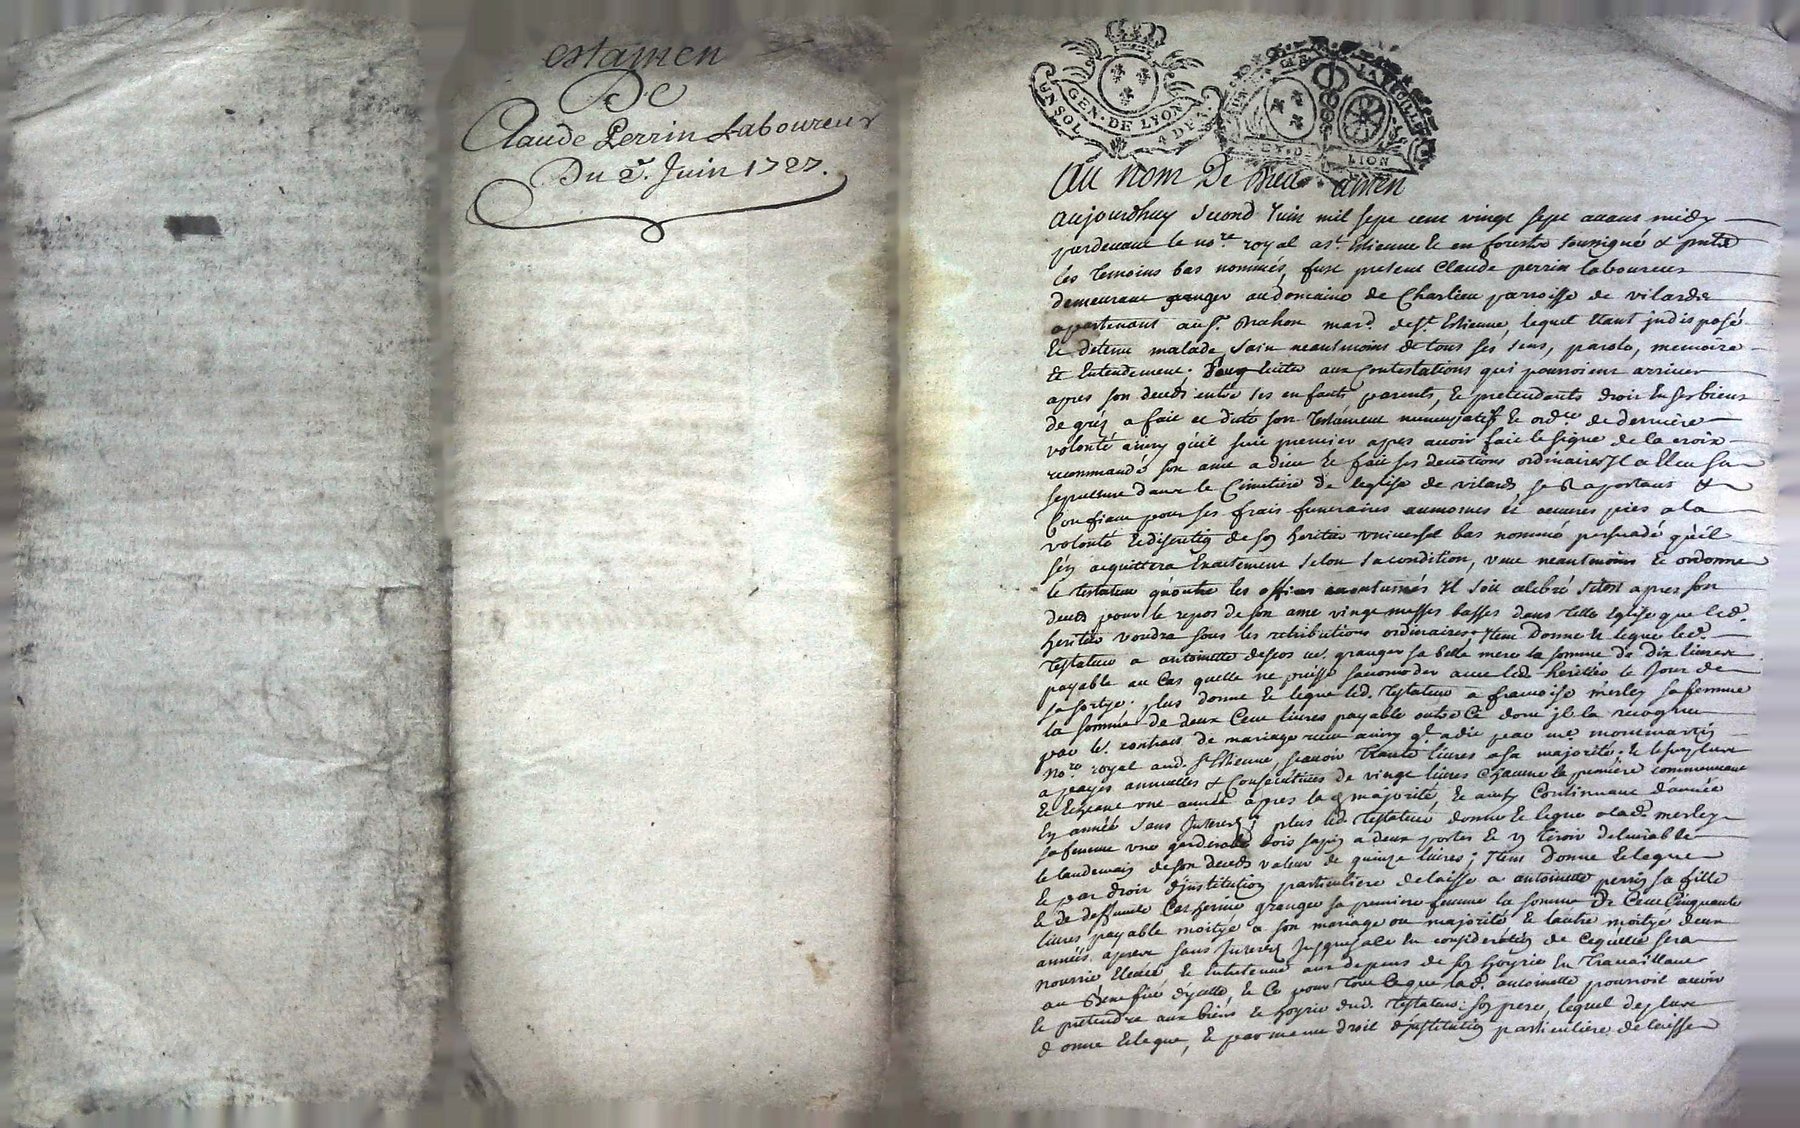 estamen
De
Claude Perrin Laboureur
Du 2e. Juin 1727.
UN SOL GEN. DE LYON 4 DE
LION
Au nom De Dieu amen
aujourdhuy second Juin mil sept cent vingt sept avant midy
pardevant le nore. royal a st. Estienne et en forests soussigné &
les temoins bas nommés, fust present Claude perrin laboureur
demeurant granger au domaine de Charlieu parroisse de vilards
apartenant au sr. mard. de st. Estienne, lequel Etant jndisposé
Et detenu malade, sain neantmoins de tous ses sens, parole, memoire
Et Entendement. Pour Eviter aux contestations qui pourroient arriver
apres son deceds entre ses enfants parents, Et pretendants droit En ses biens
de gré, a fait et dicté son Testament noncupatif Et ordce. de derniere
volonté ainsy quil suit premier apres avoir fait le signe de la croix
recommandé son ame a dieu Et fait ses devotions ordinaires Il a Eleu sa
sepulture dans le Cimetiere de leglise de vilards, se Raportant &
Confiant pour ses frais funeraires aumosnes et oeuvres pies a la
volonté Et discretion de son heritier universel bas nommé persuadé qu'il
s'en acquittera Exactement selon sa condition, veut neantmoins Et ordonne
le testateur qu'outre les offices accoutumés Il soit celebré sitost apres son
deceds pour le repos de son ame vingt messes basses dans telle Eglise que led.
heritier voudra sous les retributions ordinaires, Item Donne Et legue led.
Testateur a antoinette ve. granger sa belle mere la somme de Dix livres
payable au Cas quelle ne puisse saccomoder avec led. heritier le Jour de
sa sortye; plus donne Et legue led. Testateur a francoise merley sa femme
la somme de deux Cent livres payable outre Ce dont jl la recognue
par le contract de mariage receu ainsy qt. a dit par me. montmartin
Nore. royal aud. St. Estienne, scavoir Trante livres a sa majorité Et le surplus
a payes annuelles & Consecutives de vingt livres chacune la premiere commencant
Et Echeant une année apres la majorité, Et ainsy Continuant d'année
En année sans Interest; plus led. Testateur donne Et legue a lad. merley
sa femme une garderobe bois sapin a deux portes Et un tiroir delivrable
le landemain de son deceds valeur de quinze livres; Item Donne Et legue
Et par droit d'jnstitution particuliere delaisse a antoinette perrin sa fille
Et de deffunte Catherine granger sa premiere femme la somme de Cent Cinquante
livres payable moityé a son mariage ou majorité Et lautre moityé deux
années apres sans Interest Jusques ale En consideration de Cequelle sera
nourrie Elevée Et Entretenue aux depens de son hoyrie En Travaillant
au Benefice d'ycelle, Et Ce pour Tout Ceque lad. antoinette pourroit avoir
Et pretendre aux biens Et hoyrie dud. Testateur son pere, lequel de plus
donne Et legue, Et par meme droit d'jnstitution particuliere delaisse